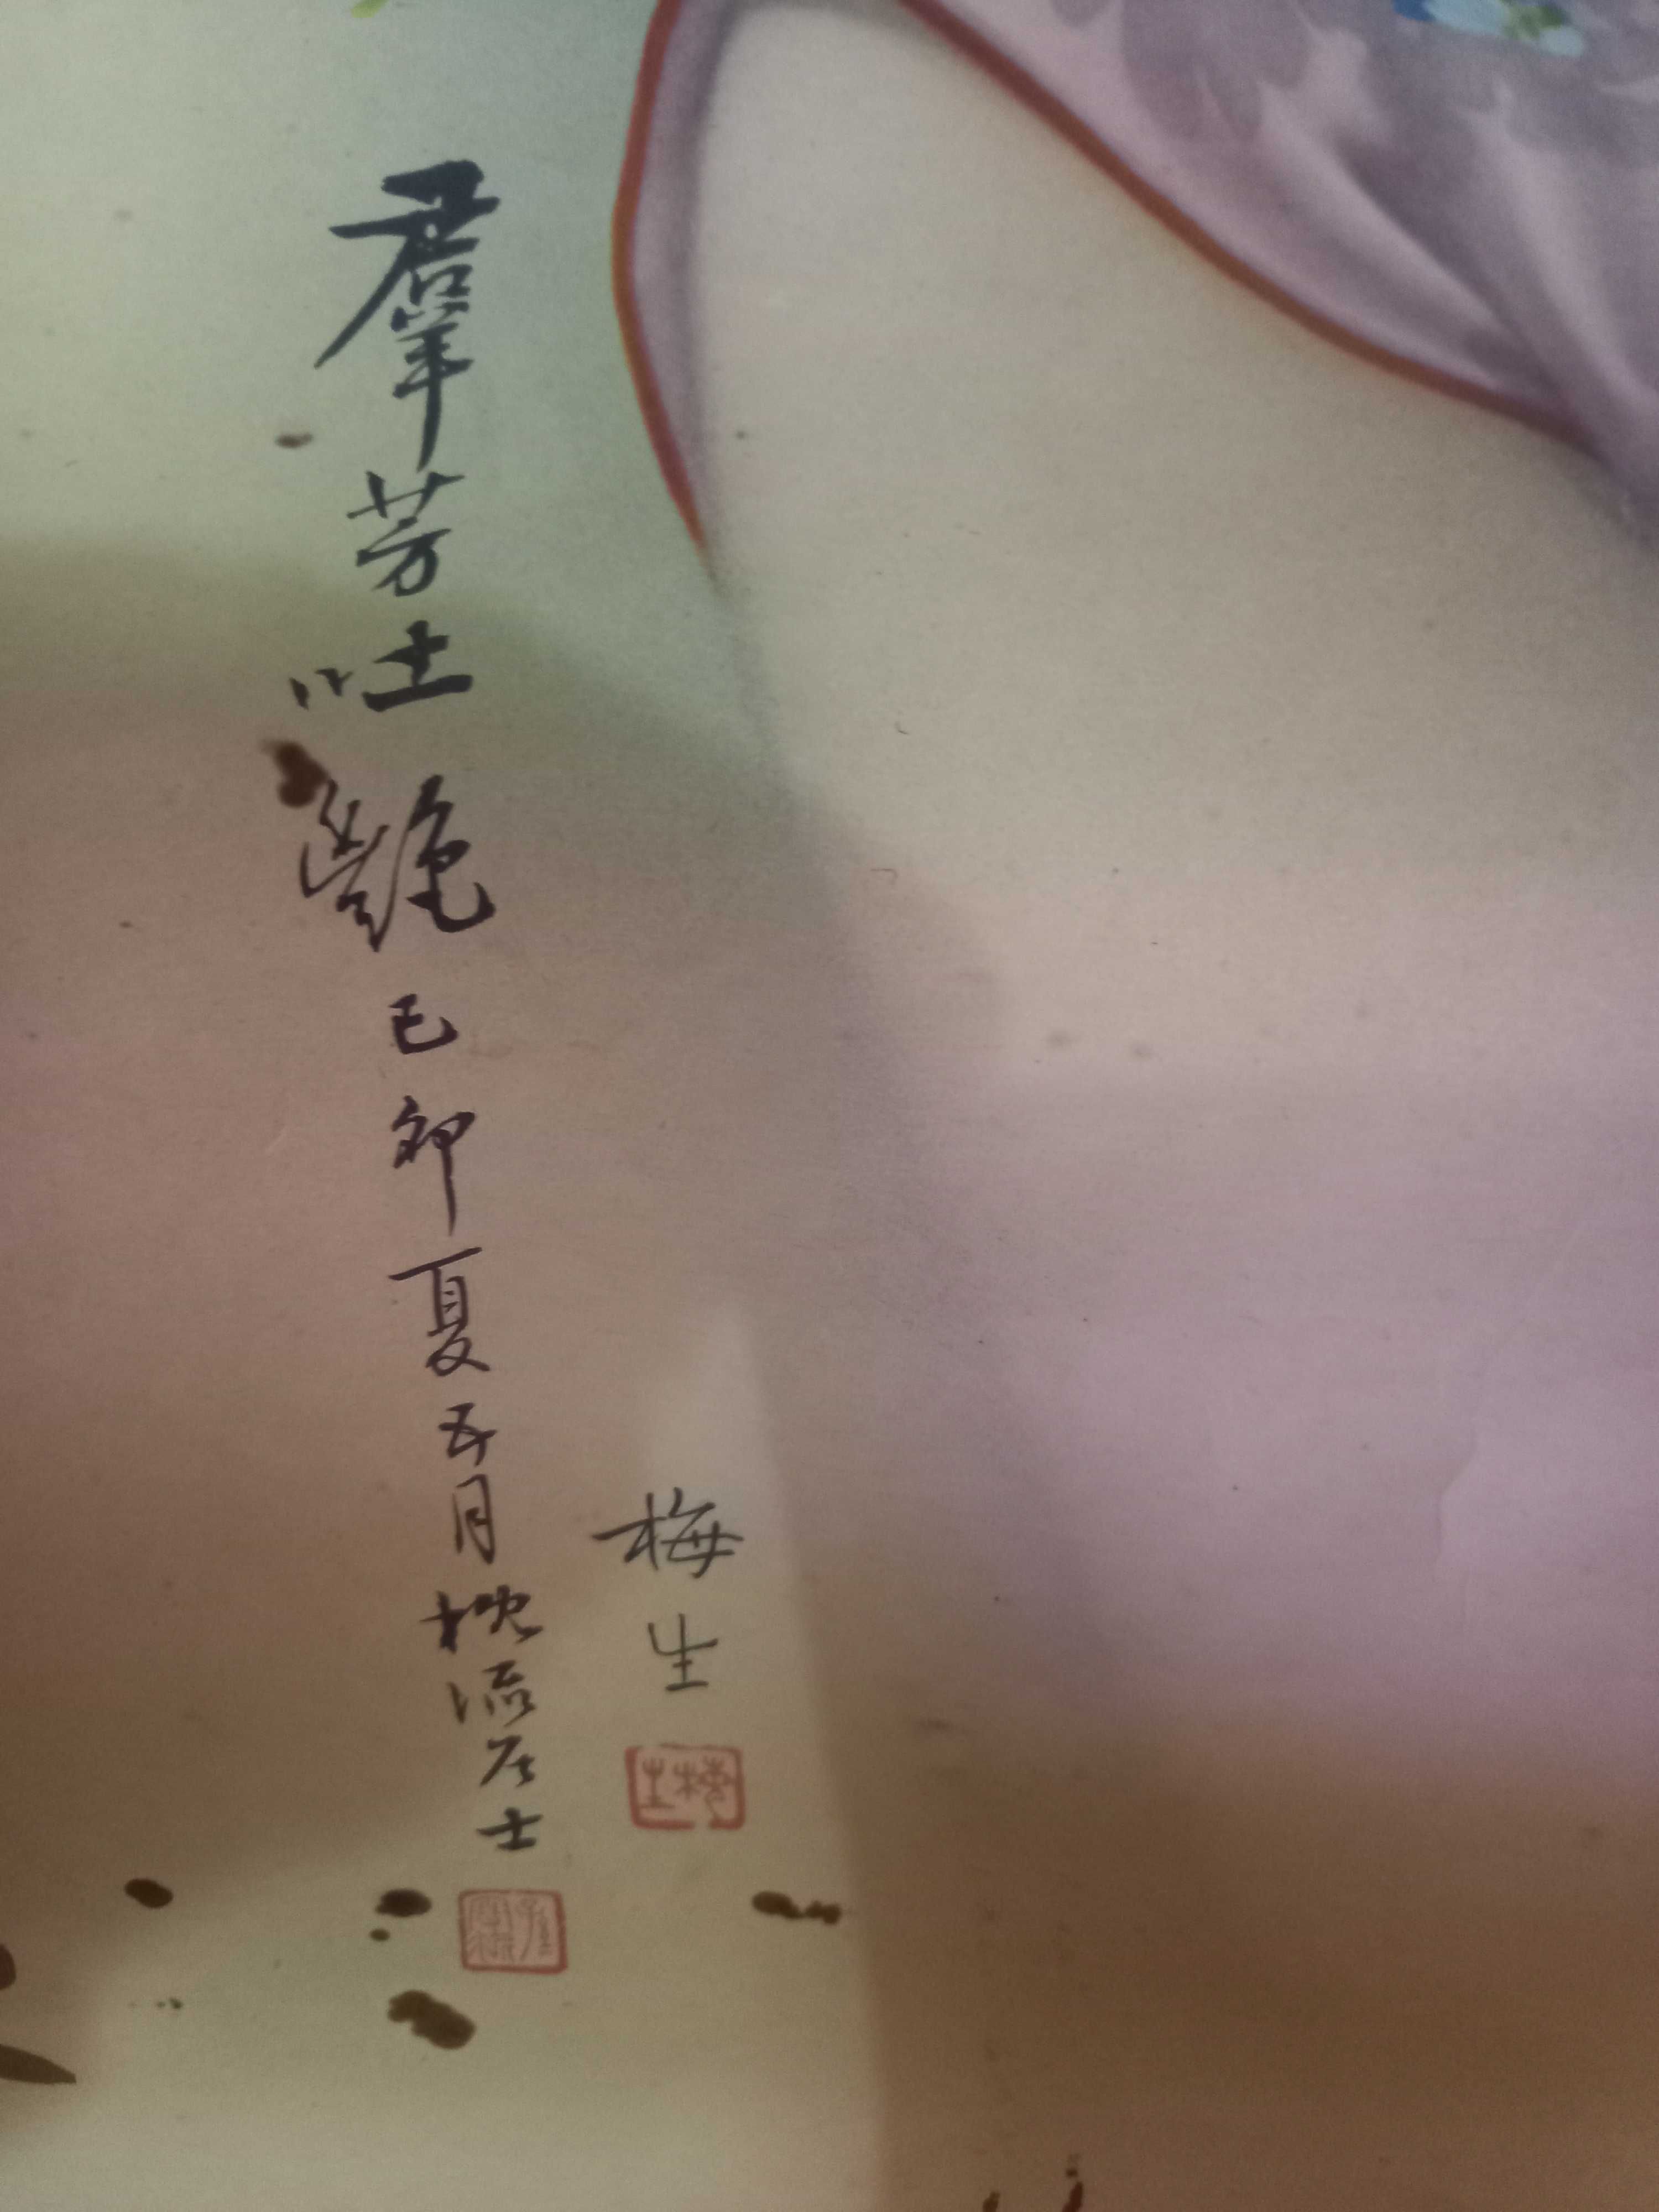 羣芳吐艷 己卯夏五月枕流居士
梅生
梅生